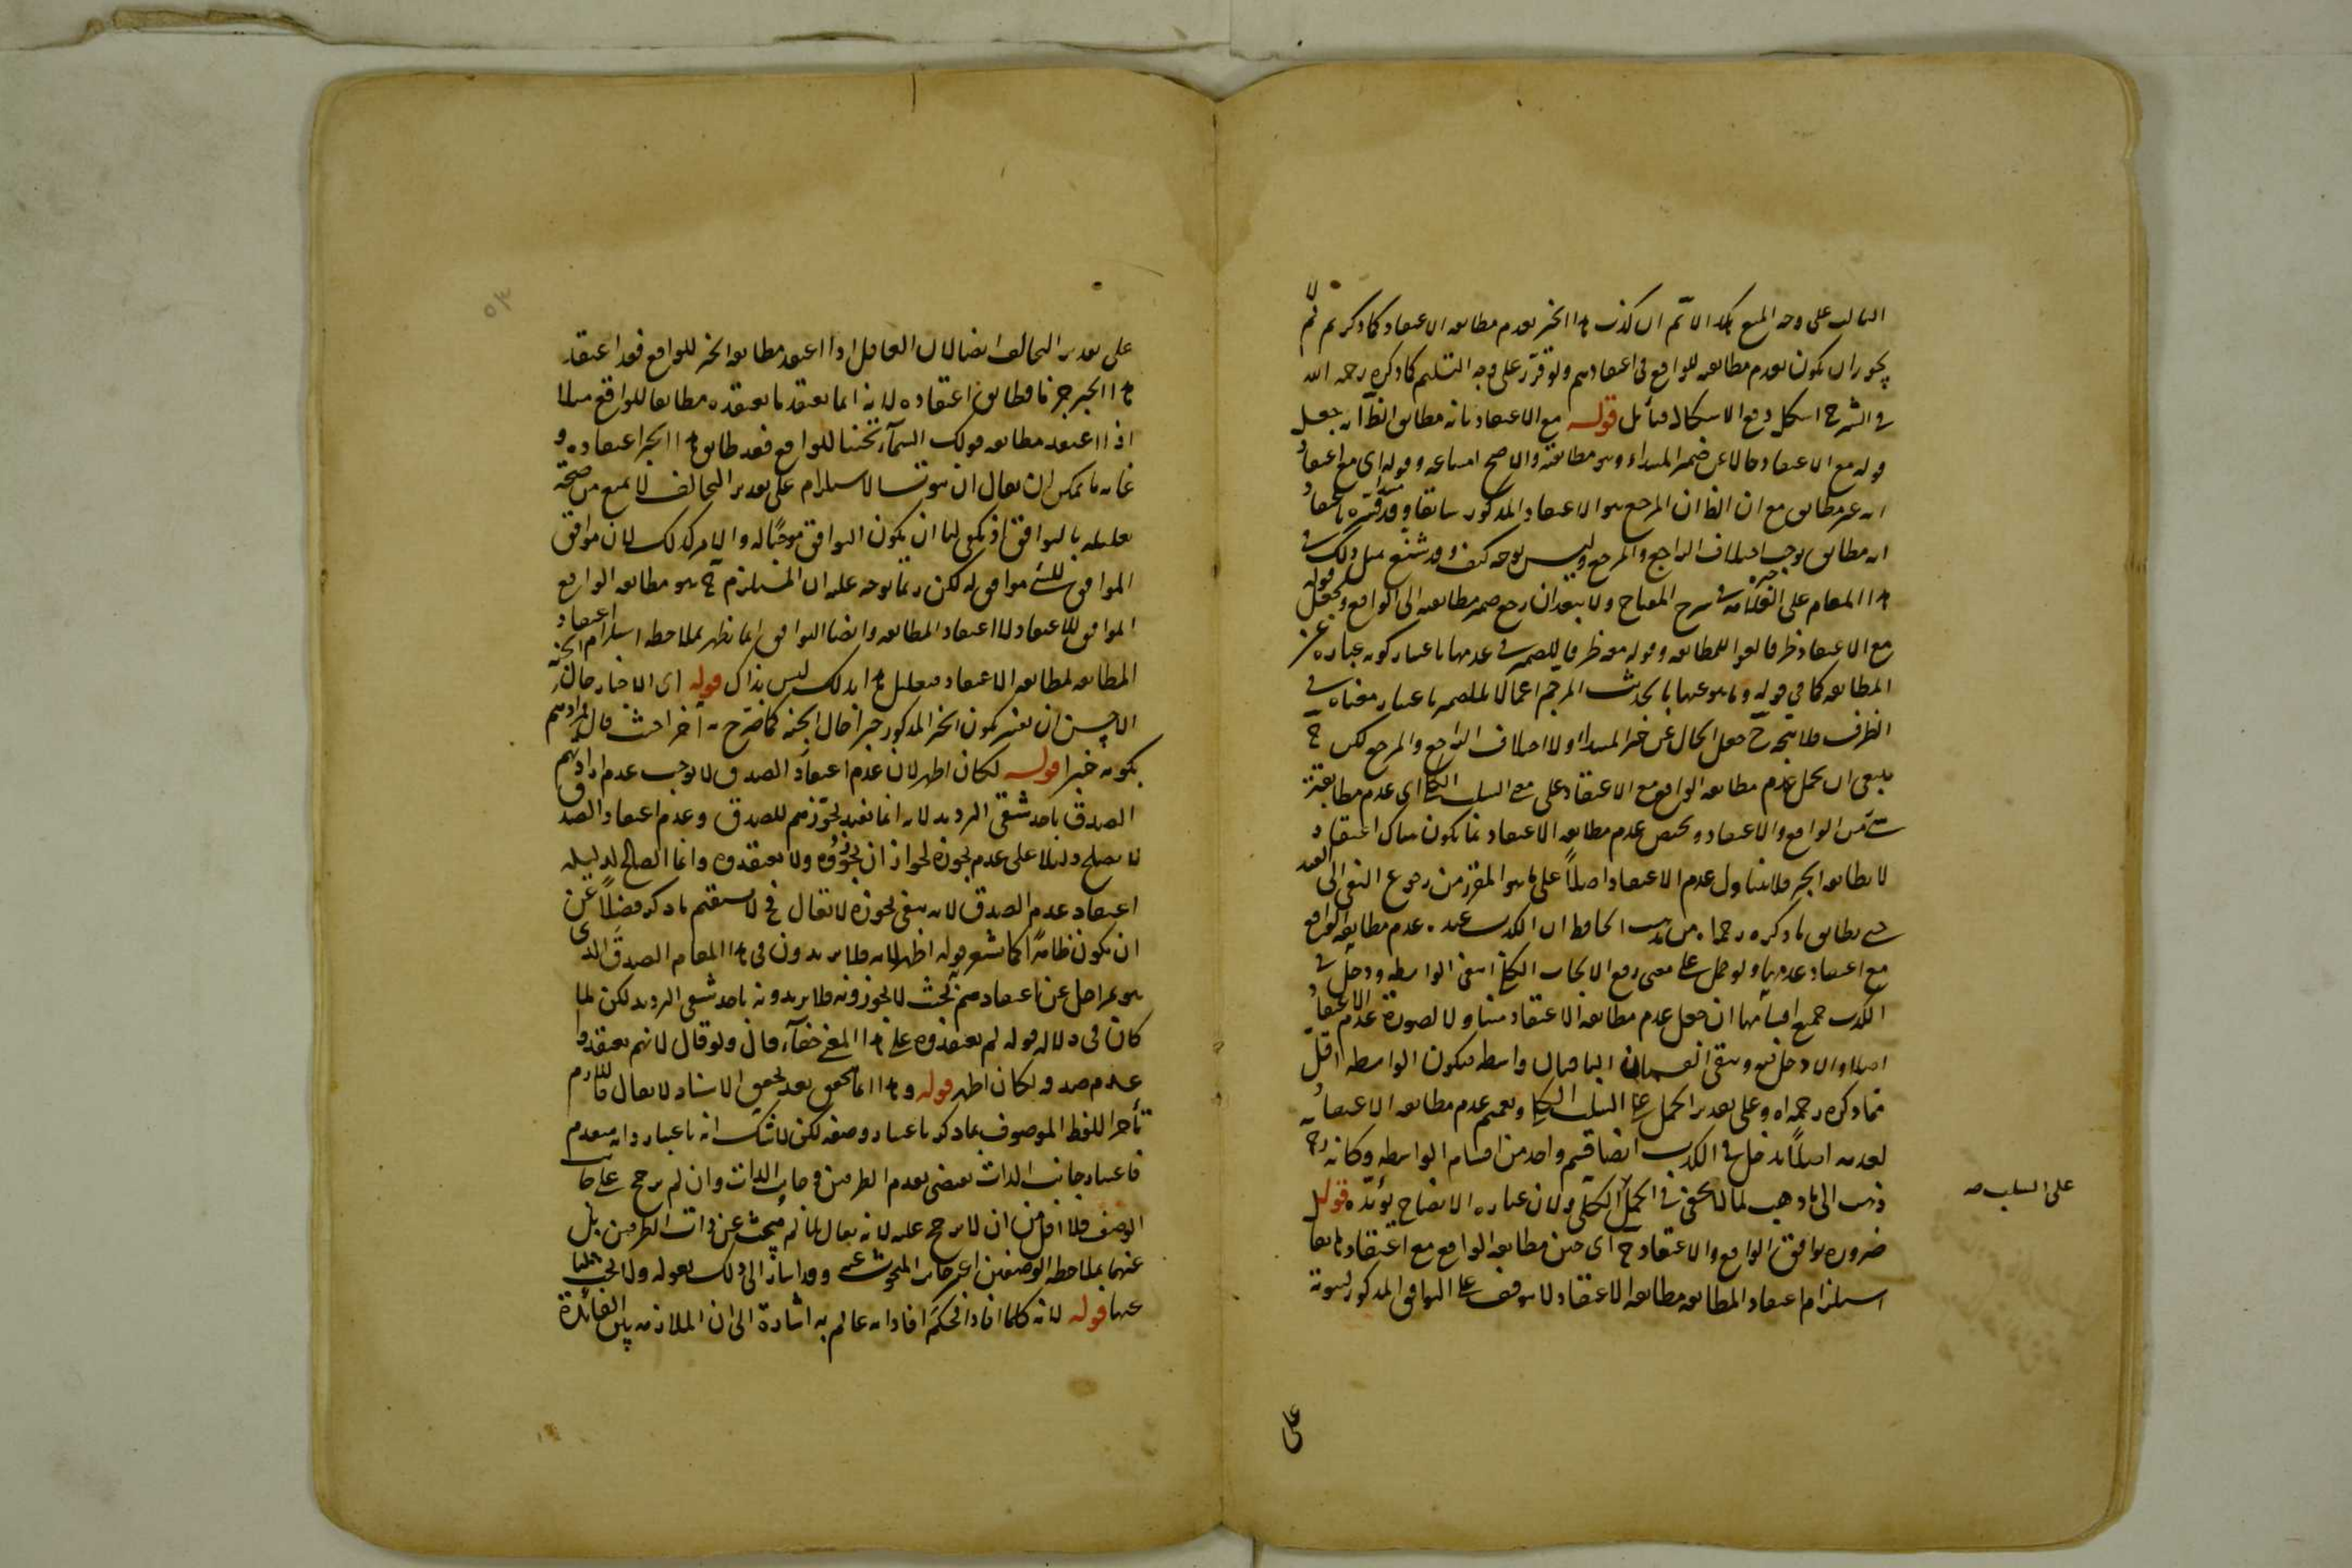 على وجه المنع لا لا تم ان كذب هذا الخبر لعدم مطابقه الاعتقاد كما ذكرتم لم لا
يجوز ان يكون لعدم مطابقته للواقع فى اعتقادهم ولو قرر على وجه التسليم كما ذكره رحمه الله
فى الشرح اشكل دفع الاشكال فتأمل قوله مع الاعتقاد بانه مطابق الظ انه جعل
قوله مع الاعتقاد حالا عن ضمير المبتداء وهو مطابقته والاصح امتناعه وقوله اى مع اعتقاد
انه غير مطابق مع ان الظ ان المرجع هو الاعتقاد المذكور سابقا وقد فسره باعتقاد
انه مطابق يوجب اختلاف الراجع والمرجع وليس بوجه كيف وقد شنع مثل ذلك فى
هذا المقام على العلامه فى شرح المفتاح ولا يبعد ان يرجع ضمير مطابقته الى الواقع ويجعل قوله
مع الاعتقاد ظرفا لغوا للمطابقه وقوله معه ظرفا للضمير فى عدمها باعتبار كونه عبارة عن
المطابقه كما فى قوله وما هو عنها بالحديث المرجم اعمالا للضمير باعتبار معناه فى
الظرف فلا يتجه ح جعل الحال عن خبر المبتدا ولا اختلاف الراجع والمرجع لكن ح
ينبغى ان يحمل عدم مطابقه الواقع مع الاعتقاد على معنى السلب الكلى اى عدم مطابقته
شئ من الواقع والاعتقاد ويخص عدم مطابقه الاعتقاد بما يكون هناك اعتقاد
لا يطابقه الخبر فلا يتناول عدم الاعتقاد اصلا على ما هو المقرر من رجوع النفى الى القيد
حتى يطابق ما ذكره رحمه الله من مذهب الجاحظ ان الكذب عنده عدم مطابقه الواقع
مع اعتقاد عدمها ولو حمل على معنى رفع الايجاب الكلى انتفى الواسطه ودخل فى
الكذب جميع اقسامها ان جعل عدم مطابقه الاعتقاد متناولا لصورة عدم الاعتقاد
اصلا والا دخل فيه وبقى القسمان الباقيان واسطه فيكون الواسطه اقل
مما ذكره رحمه الله وعلى تقدير الحمل على السلب الكلى وتعميم عدم مطابقه الاعتقاد
لعدمه اصلا يدخل فى الكذب ايضا قسم واحد من اقسام الواسطه وكانه رح
ذهب الى ما ذهب لما لا يخفى فى الحمل الكلى ولان عباره الايضاح يؤيده قوله
على السلب صه
ضروره توافق الواقع والاعتقاد ح اى حين مطابقه الواقع مع اعتقاد
استلزام اعتقاد المطابقه مطابقه الاعتقاد لا يتوقف على التوافق المذكور لثبوته
على
٥٣
على تقدير التخالف ايضا لان العاقل اذا اعتقد مطابقه الخبر للواقع فقد اعتقد
هذا الخبر جزما فطابق اعتقاده لانه انما يعتقد ما يعتقده مطابقا للواقع مثلا
اذا اعتقد مطابقه قولك السماء تحتنا للواقع فقد طابق هذا الخبر اعتقاده و
غايه ما يمكن ان يقال ان ثبوت الاستلزام على تقدير التخالف لا يمنع من صحة
تعليله بالتوافق اذ يكفى لنا ان يكون التوافق موجبا له والامر كذلك لان موافق
الموافق للشئ موافق له لكن ربما يوجه عليه ان المستلزم ح هو مطابقه الواقع
الموافق للاعتقاد لا اعتقاد المطابقه وايضا التوافق انما يظهر بملاحظه استلزام اعتقاد
المطابقه لمطابقه الاعتقاد فتعليل هذا بذلك ليس بذاك قوله اى الاخبار حال الجنة
الاحسن ان يفسر بكون الخبر المذكور خبرا حال الجنه كما صرح به آخرا حيث قال مرادهم
بكونه خبرا قوله لكان اظهر لان عدم اعتقاد الصدق لا يوجب عدم ارادتهم
الصدق باحد شقى الترديد لانه انما يفيد تجوزهم للصدق وعدم اعتقاد الصدق
لا يصلح دليلا على عدم تجوزه لجواز ان يجوزوه ولا يعتقدوه وانما الصالح لدليليه
اعتقاد عدم الصدق لانه ينفى تجوزه لا يقال فح لا يستقيم ما ذكر فضلا عن
ان يكون ظاهرا كما يشعر قوله اظهر لانه فلا يريدون فى هذا المقام الصدق الذى
هو بمراحل عن اعتقادهم بحيث لا يجوزونه فلا يريدونه باحد شقى الترديد لكن لما
كان فى دلاله قوله لم يعتقدوه على هذا المعنى خفاء قال ولو قال لانهم يعتقدوا
عدم صدقه لكان اظهر قوله وهذا انما يتحقق بعد تحقق الاسناد لا يقال
تأخر اللفظ الموصوف بما ذكر باعتبار وصفه لكن لا شك انه باعتبار ذاته متقدم
فاعتبار جانب الذات يقتضى تقدم الطرفين فجانب الذات وان لم يرجح على جانب
الوصف فلا اقل من ان لا يرجح عليه لانه يقال لما لم يبحث عن ذات الطرفين بل
عنهما بملاحظه الوصفين اعتبر جانب المبحوث عنه وقد اشار الى ذلك بقوله ولا يخفى
عنها قوله لانه كلما افاد الحكم افاد انه عالم به اشارة الى ان الملازمه بين الفائدة